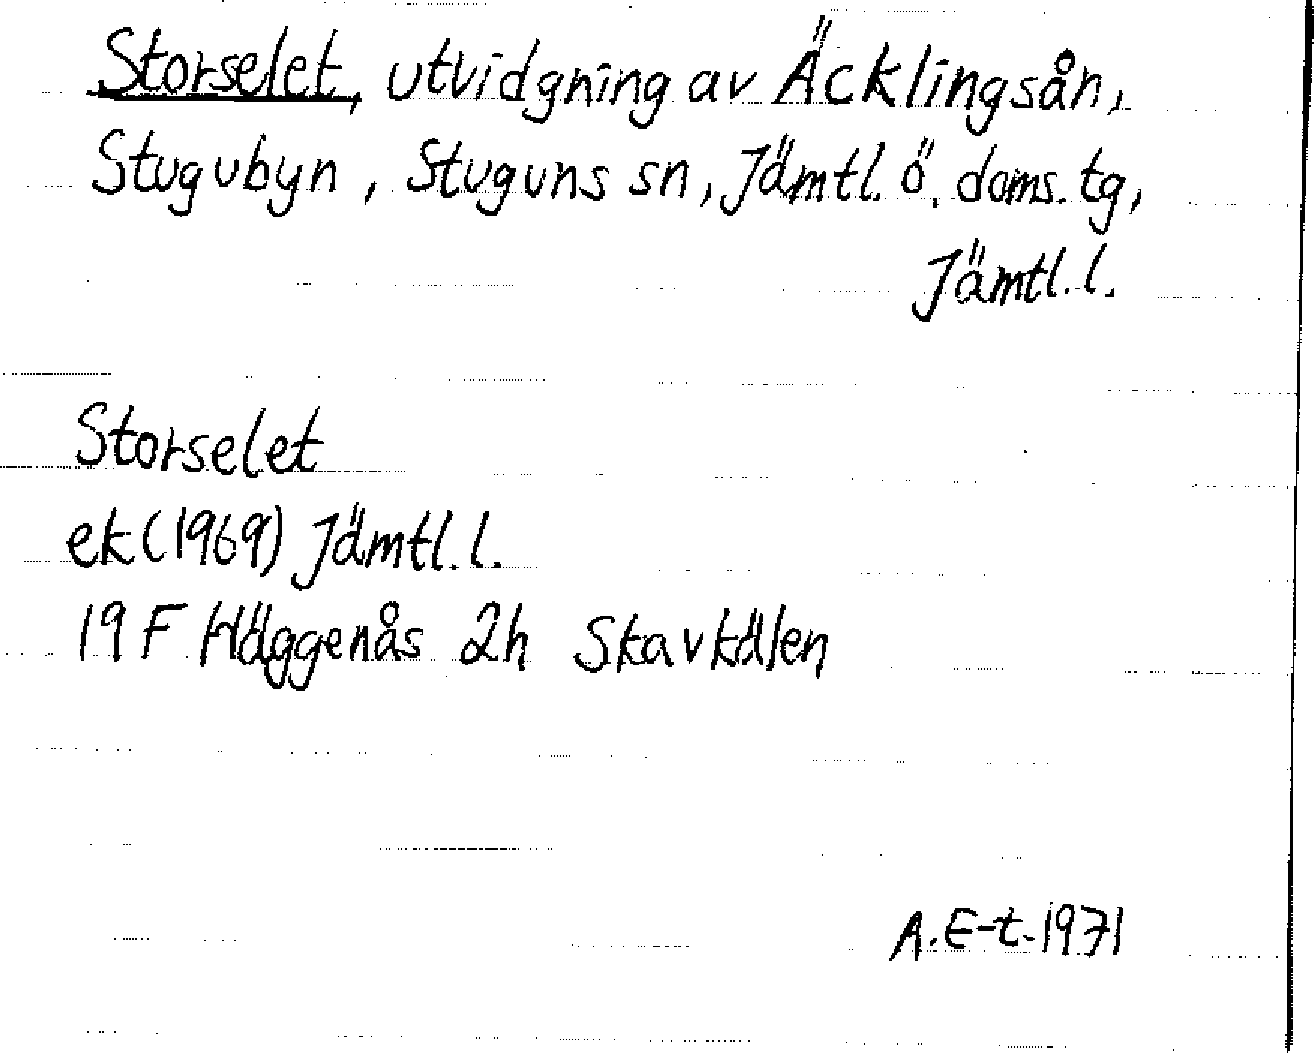 Storselet, utvidgning av Äcklingsån,
Stugubyn, Stuguns sn, Jämtl. ö. doms. tg,
Jämtl. l.
Storselet
ek (1969) Jämtl. l.
19 F Häggenås 2h Skavkälen
A. E-t. 1971